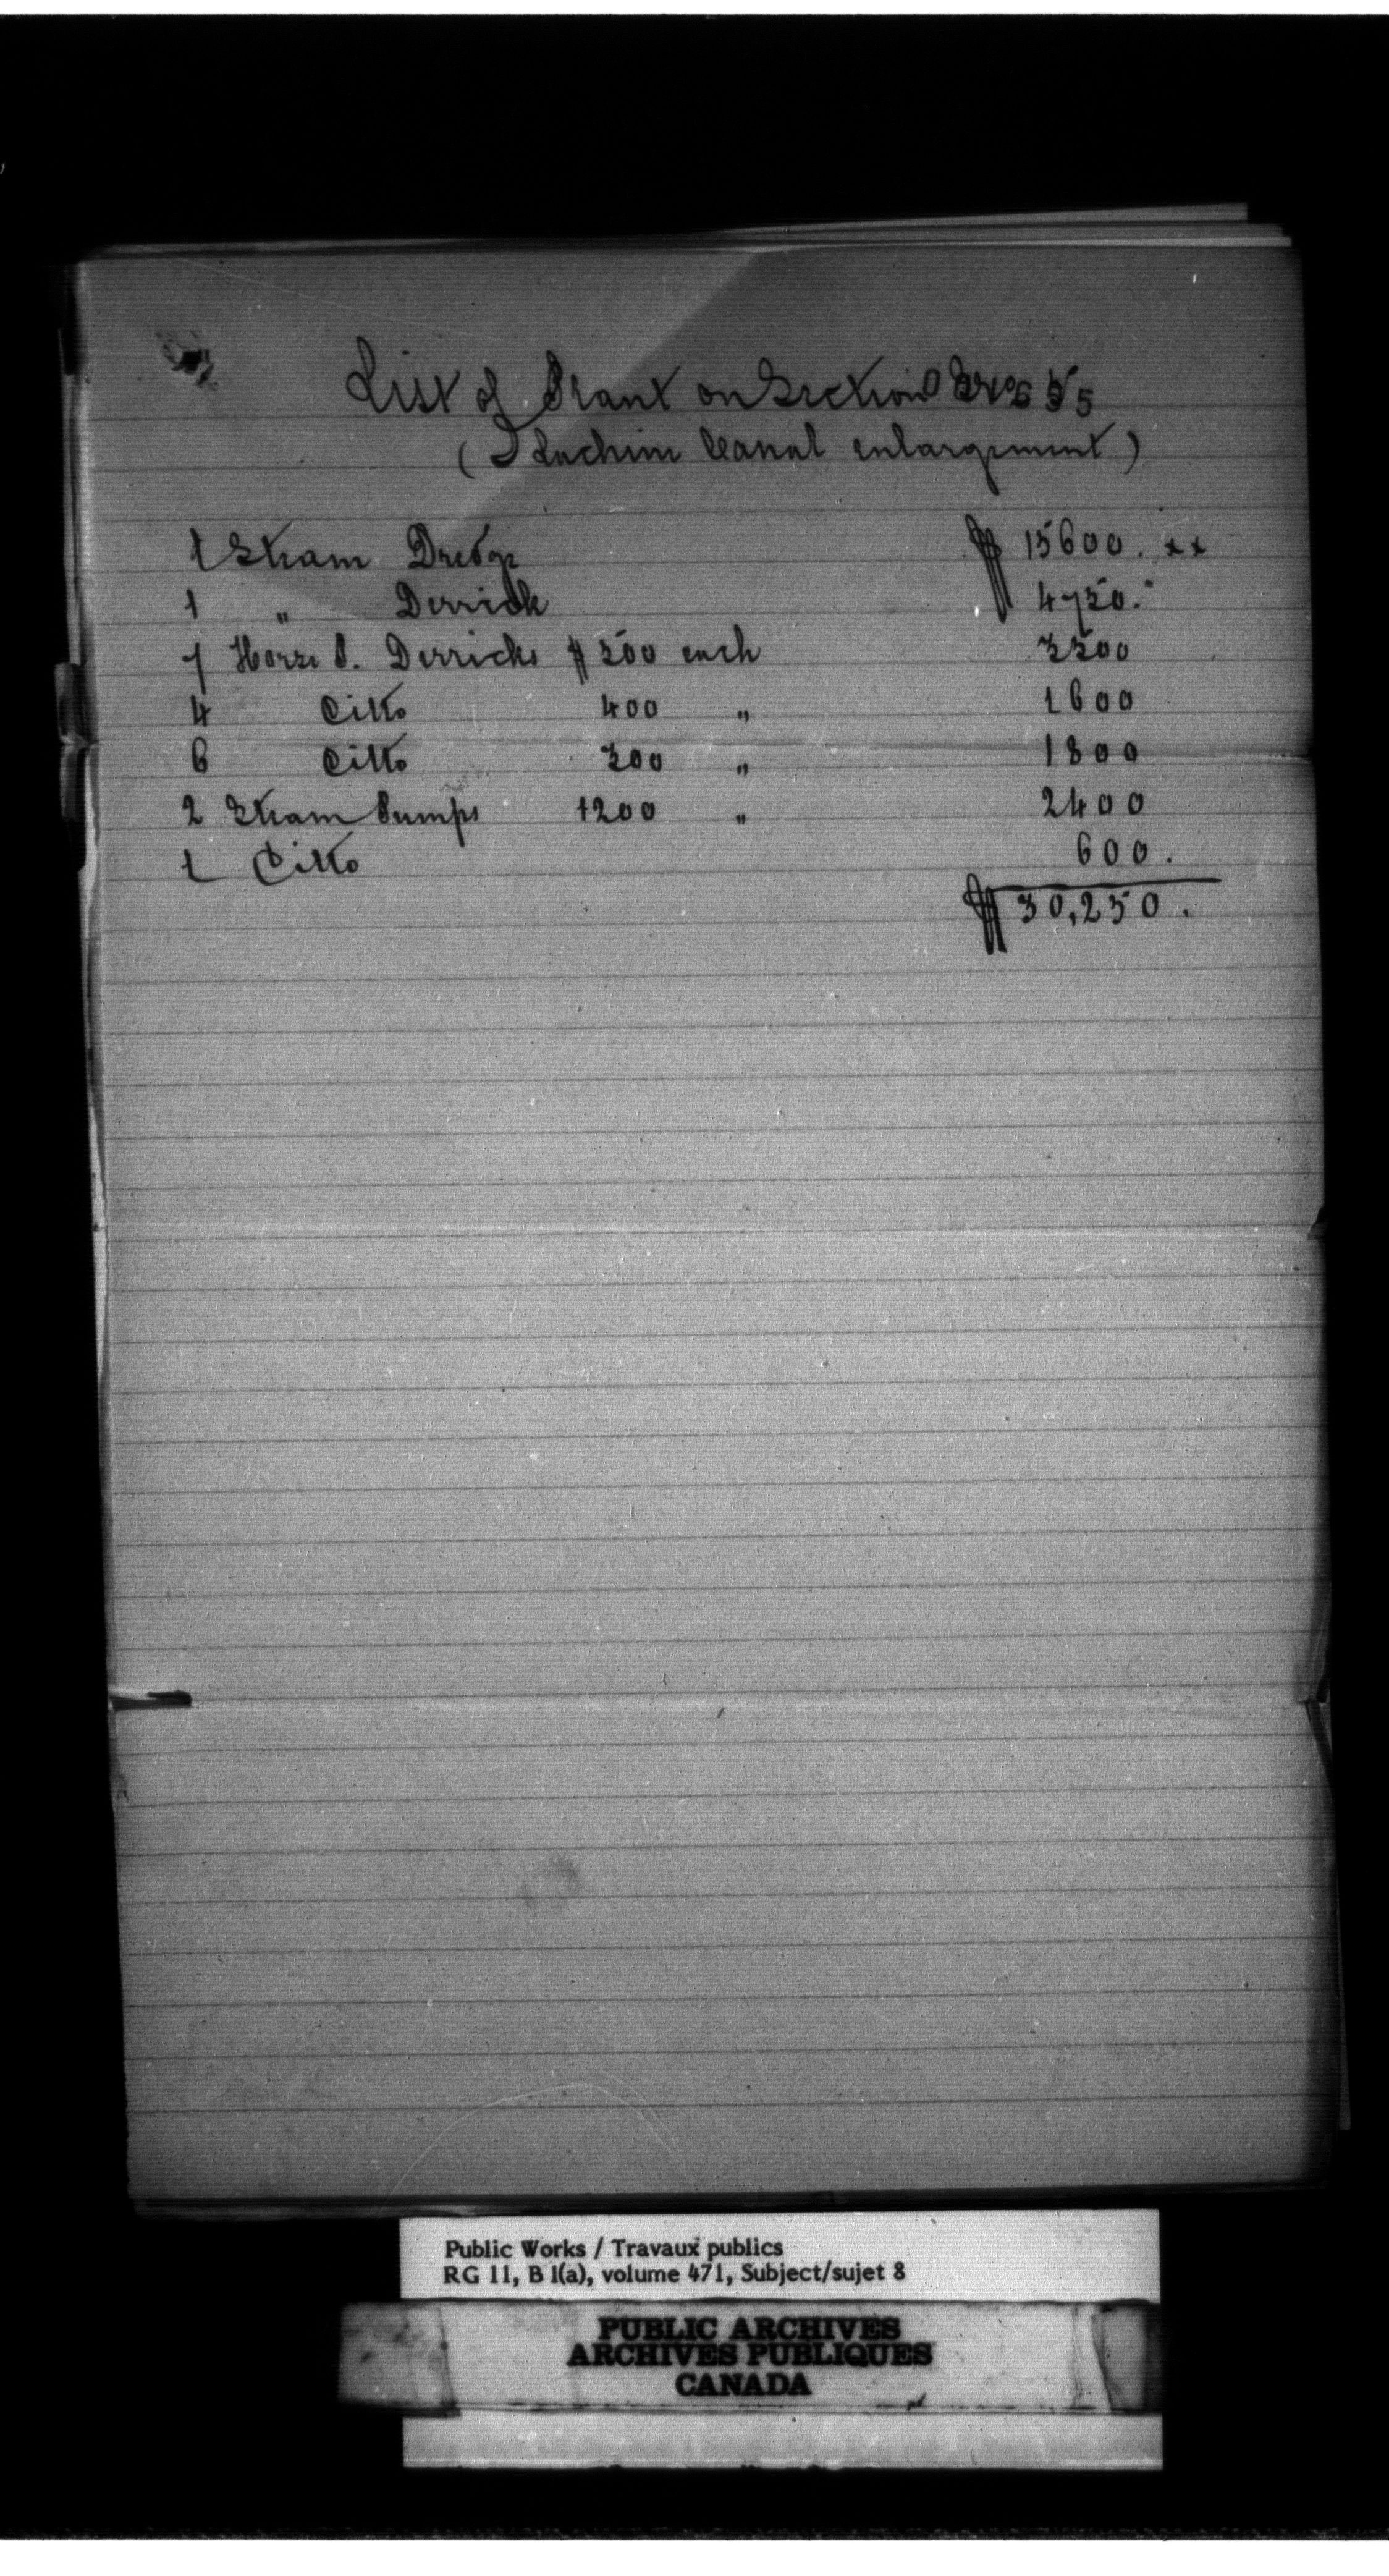 List of Plant on Section No 5
(Lachine Canal enlargement)
1 Steam Dredge $ 15600. xx
1 " Derrick 4750.
7 Horse P. Derricks $ 500 each 3500
4 Ditto 400 " 1600
6 Ditto 300 " 1800
2 Steam Pumps 1200 " 2400
1 Ditto 600.
$ 30,250.
Public Works / Travaux publics
RG 11, B 1(a), volume 471, Subject/sujet 8
PUBLIC ARCHIVES
ARCHIVES PUBLIQUES
CANADA